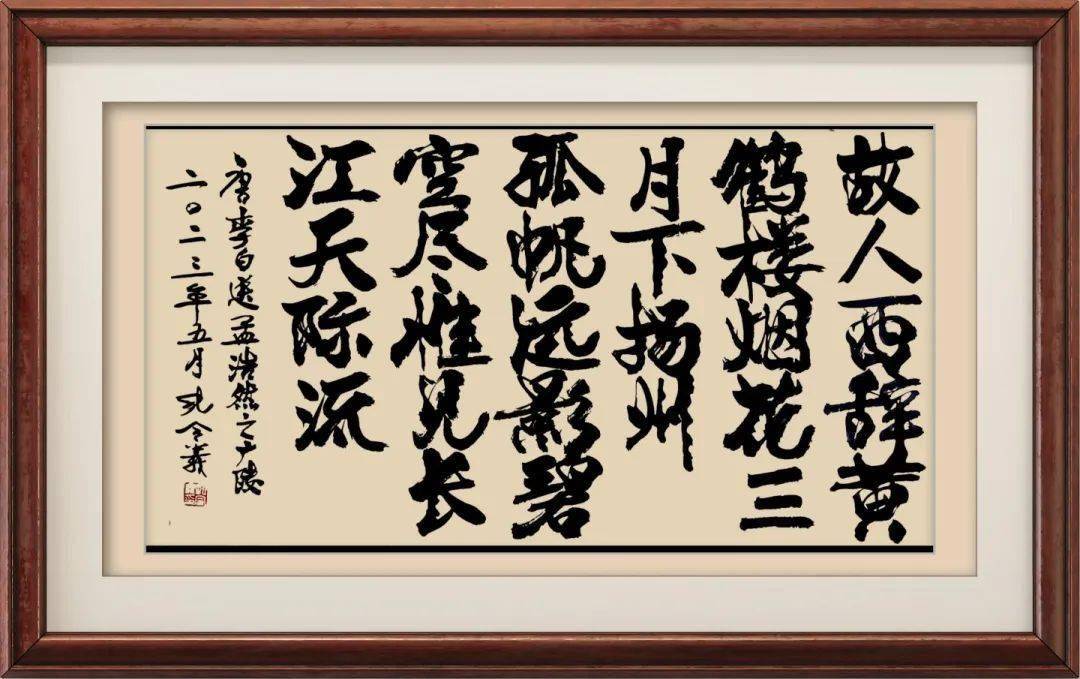 故人西辞黄
鹤楼烟花三
月下扬州
孤帆远影碧
空尽惟见长
江天际流
唐李白送孟浩然之广陵
二〇二三年五月 令义